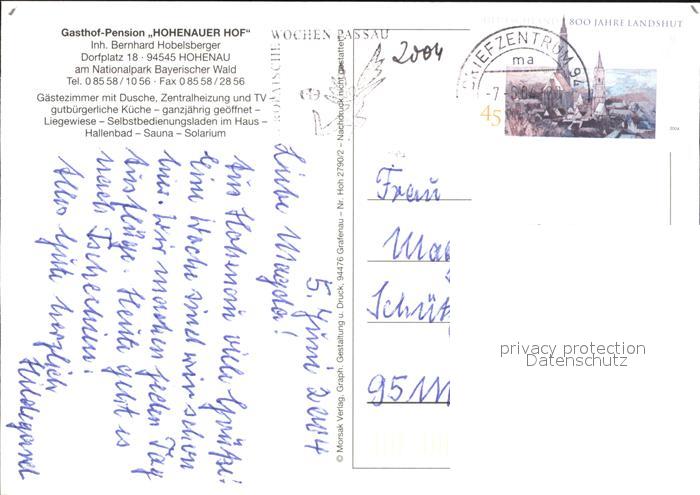 Gasthof-Pension „HOHENAUER HOF"
Inh. Bernhard Hobelsberger
Dorfplatz 18 · 94545 HOHENAU
am Nationalpark Bayerischer Wald
Tel. 0 85 58 / 10 56 · Fax 0 85 58 / 28 56
Gästezimmer mit Dusche, Zentralheizung und TV
gutbürgerliche Küche – ganzjährig geöffnet –
Liegewiese – Selbstbedienungsladen im Haus –
Hallenbad – Sauna – Solarium
5. Juni 2004
Liebe Magda!
Aus Hohenau viele Grüße!
Eine Woche sind wir schon
hier. Wir machen jeden Tag
Ausflüge. Heute geht es
nach Tschechien.
Alles Gute herzlich
Hildegard
© Morsak Verlag, Graph. Gestaltung u. Druck, 94476 Grafenau – Nr. Hoh 2790/2 – Nachdruck nicht gestattet
WOCHEN PASSAU
2004
BRIEFZENTRUM 94
ma
DEUTSCHLAND 800 JAHRE LANDSHUT
45
2004
Frau
Ma
Schüt
95
privacy protection
Datenschutz